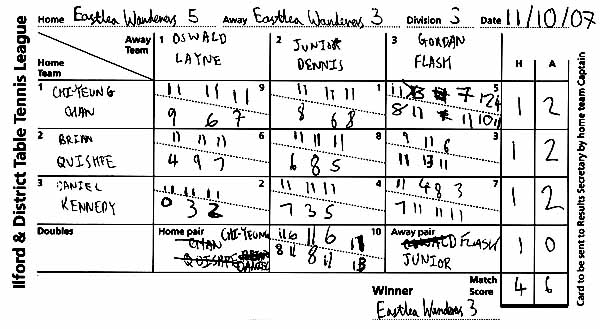 Ilford & District Table Tennis League
Home Eastlea Wanderers 5 Away Eastlea Wanderers 3 Division 3 Date 11/10/07
Away Team 1 OSWALD LAYNE 2 JUNIOR DENNIS 3 GORDAN FLASH H A
Home Team
1 CHI-YEUNG CHAN 9 1 5
11 11 11 11 11 11
9 6 7 8 6 8 1 2
2 BRIAN QUISHPE 6 8 3
11 11 11 11 11 11 9 11 6
4 9 7 6 8 5 11 13 11 1 2
3 DANIEL KENNEDY 2 4 7
11 11 11 11 11 11 11 4 8 3
0 3 2 7 3 5 7 11 11 11 1 2
Doubles Home pair CHI-YEUNG CHAN QUISHPE DANIEL 10 Away pair FLASH JUNIOR 1 0
11 6 11 6 11
8 11 8 11 13
Match Score 4 6
Winner Eastlea Wanderers 3
Card to be sent to Results Secretary by home team Captain